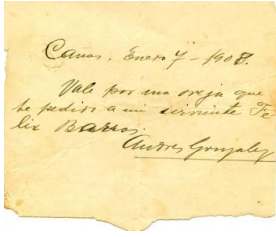 Cañas. Enero 7 - 1908.
Vale por una oreja que
he pedido a mi sirviente Fe
lix Barros.
Andres Gonzalez